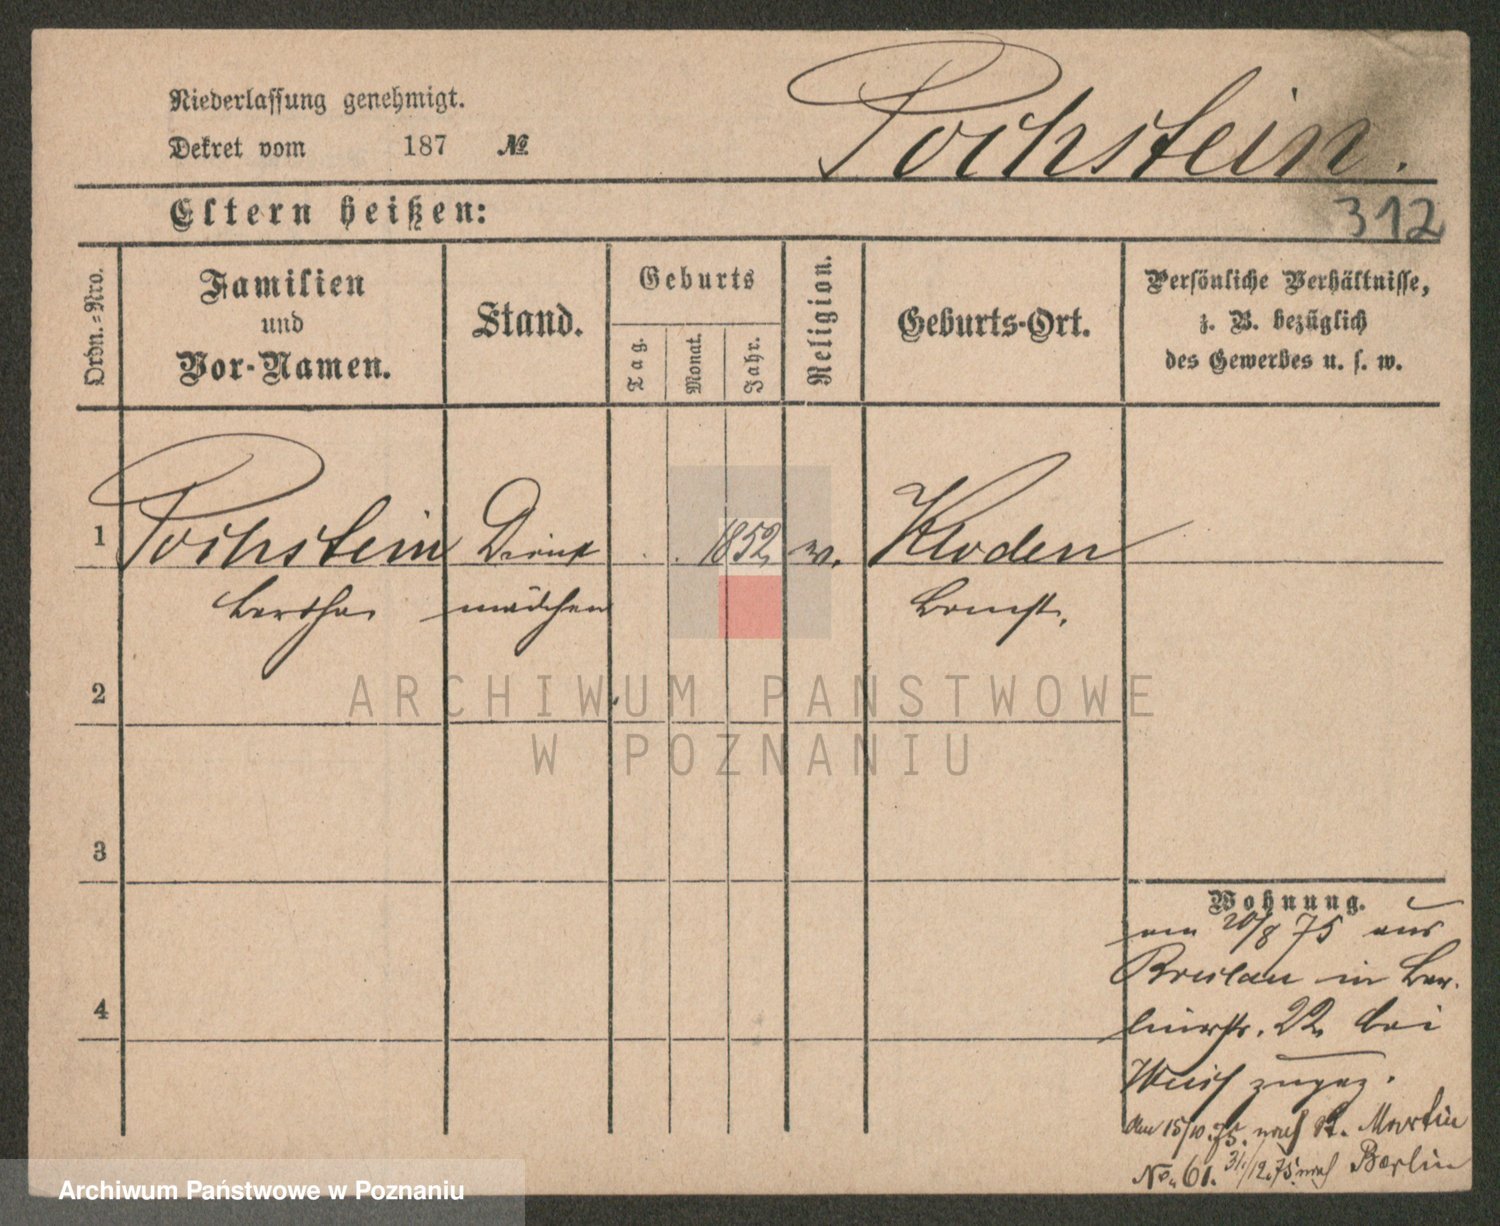 Niederlassung genehmigt.
Dekret vom 187 №
Pochstein.
Eltern heißen:
312
Ordn.-Nro.
Familien
und
Vor-Namen.
Stand.
Geburts
Tag.
Monat.
Jahr.
Religion.
Geburts-Ort.
Persönliche Verhältnisse,
z. B. bezüglich
des Gewerbes u. s. w.
1 Pochstein Dienst . . 1852
Bertha mädchen Bomst.
2
ARCHIWUM PAŃSTWOWE
W POZNANIU
3
4
Wohnung.
am 20/8 75 aus
Breslau in Ber-
linerstr. 22 bei
zugez.
den 15/10.75. nach St. Martin
No. 61. 31./12.75. nach Berlin
Archiwum Państwowe w Poznaniu